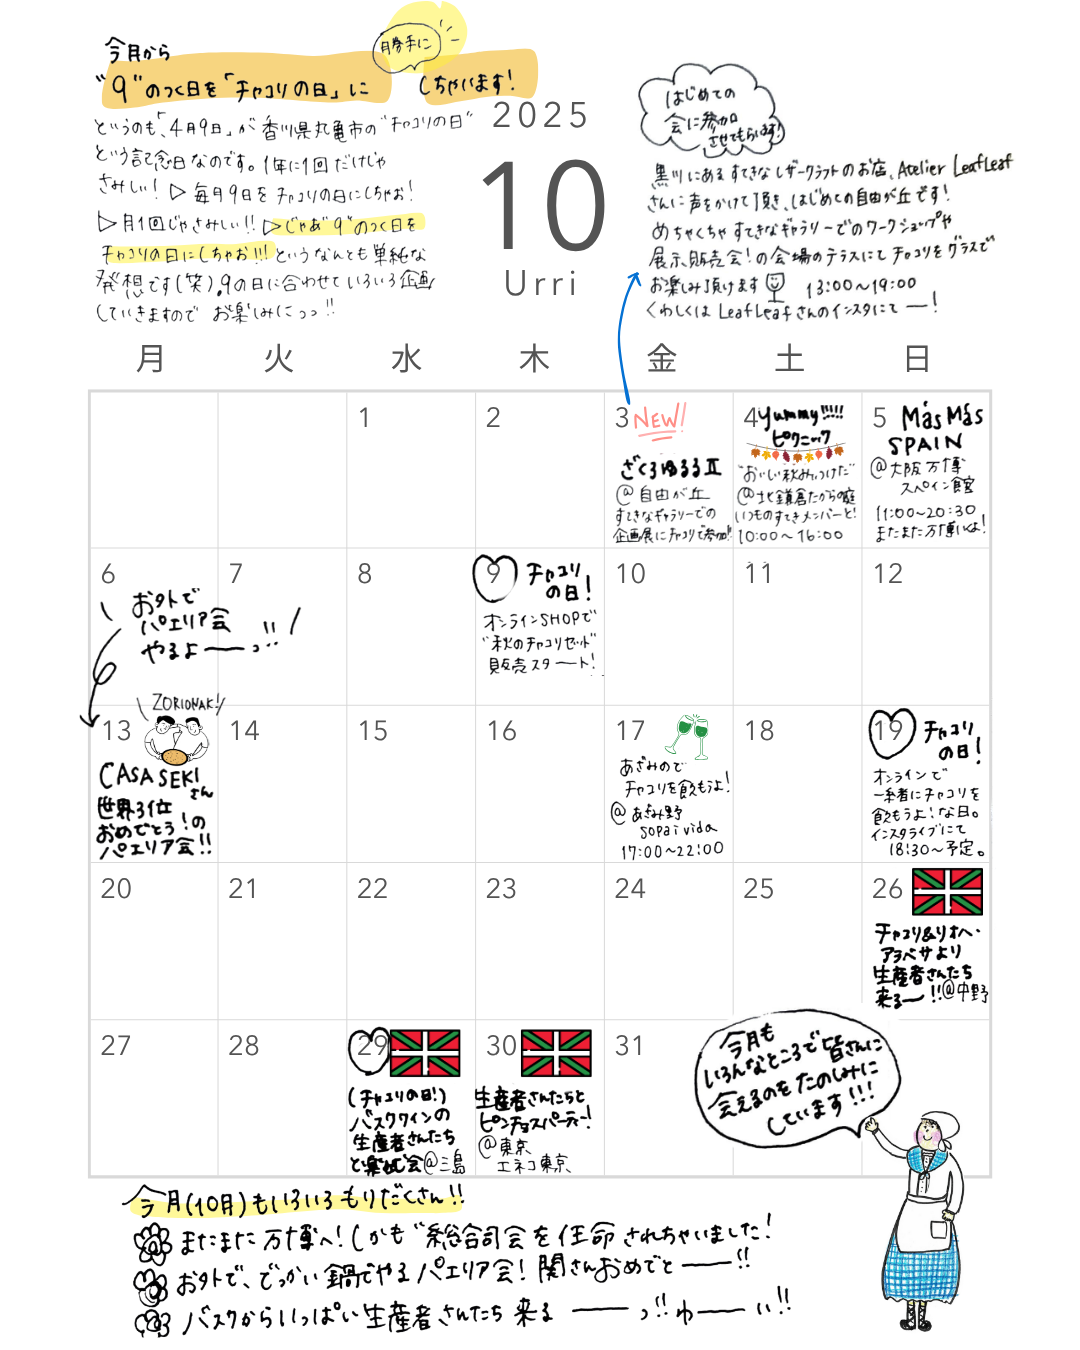 今月から
"9"のつく日を「チャコリの日」に
勝手に
しちゃいます!
というのも、「4月9日」が 香川県丸亀市の"チャコリの日"
という記念日なのです。1年に1回だけじゃ
さみしい! ▷毎月9日をチャコリの日にしちゃお!
▷月1回じゃさみしい!! ▷じゃあ"9"のつく日を
チャコリの日にしちゃお!!! というなんとも単純な
発想です(笑)。9の日に合わせていろいろ企画
していきますので お楽しみにっっ!!
2025
10
Urri
はじめての
会に参加
させてもらいます!
黒川にあるすてきなレザークラフトのお店、Atelier LeafLeaf
さんに声をかけて頂き、はじめての自由が丘です!
めちゃくちゃすてきなギャラリーでのワークショップや
展示、販売会!の会場のテラスにて チャコリをグラスで
お楽しみ頂けます 13:00〜19:00
くわしくは LeafLeafさんのインスタにてー!
月 火 水 木 金 土 日
1
2
3 NEW!
ざくろゆるるⅡ
@自由が丘
すてきなギャラリーでの
企画展にチャコリで参加!!
4 Yummy!!!!!
ピクニック
"おいしい秋みつけた"
@北鎌倉たからの庭
いつものすてきメンバーと!
10:00〜16:00
5 Más Más
SPAIN
@大阪万博
スペイン館
11:00〜20:30
またまた万博いくよ!
6
おタトで
パエリア会
やるよーーっ!!
7
8
9 チャコリ
の日!
オンラインSHOPで
"秋のチャコリセット"
販売スタート!
10
11
12
ZORIONAK!
13
CASA SEKIさん
世界3位
おめでとう!の
パエリア会!!
14
15
16
17
あざみので
チャコリを飲もうよ!
@あざみ野
sopai vida
17:00〜22:00
18
19 チャコリ
の日!
オンラインで
一緒にチャコリを
飲もうよ!な日。
インスタライブにて
18:30〜予定。
20
21
22
23
24
25
26
チャコリ&リオハ・
アラベサより
生産者さんたち
来るー!!@中野
27
28
29
(チャコリの日!)
バスクワインの
生産者さんたち
と楽しむ会@三島
30
生産者さんたちと
ピンチョスパーティー!
@東京
エネコ東京
31
今月も
いろんなところで皆さんに
会えるのをたのしみに
しています!!!
今月(10月)もいろいろもりだくさん!!
またまた万博へ!しかも"総合司会を任命されちゃいました!
おタトで、でっかい鍋でやるパエリア会!関さんおめでとーー!!
バスクからいっぱい生産者さんたち来るーーっ!!わーーい!!